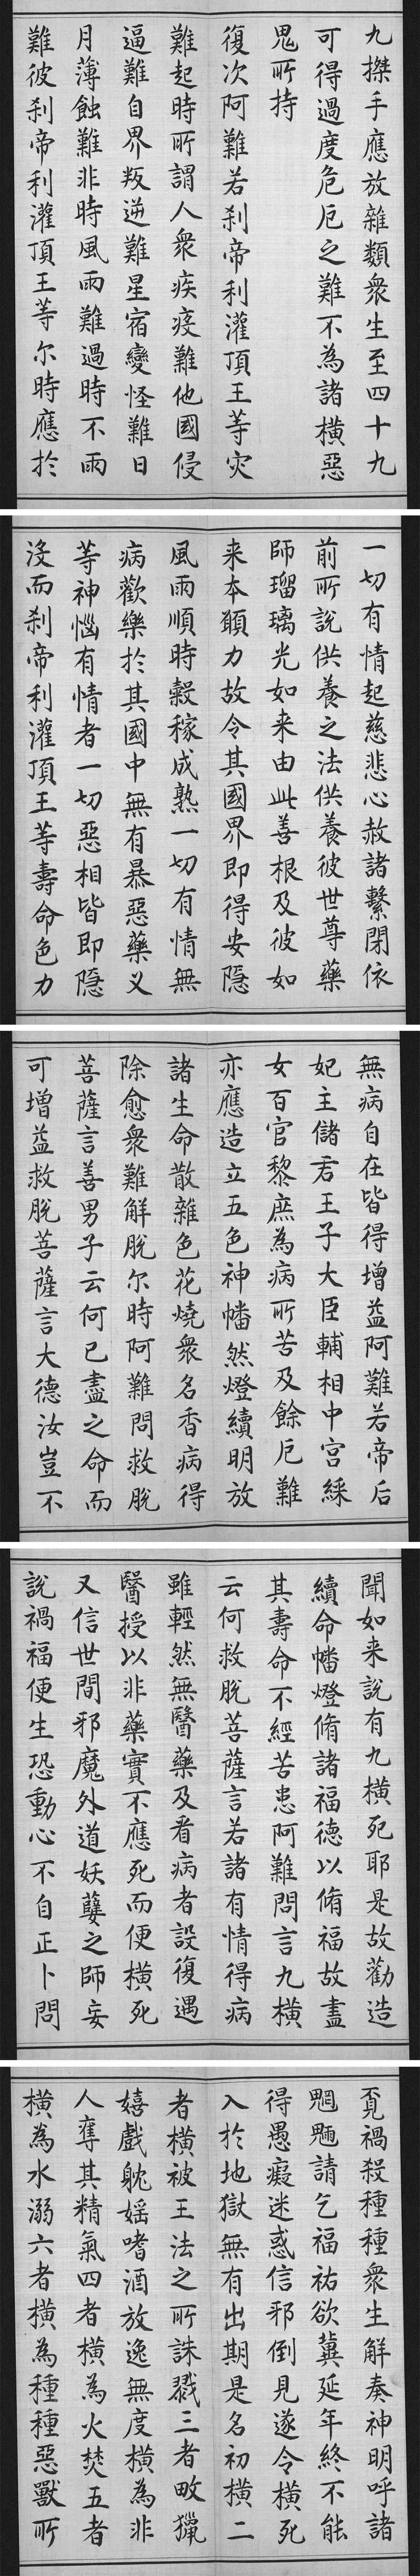 九搩手應放雜類衆生至四十九
可得過度危厄之難不為諸橫惡
鬼所持
復次阿難若剎帝利灌頂王等灾
難起時所謂人衆疾疫難他國侵
逼難自界叛逆難星宿變怪難日
月薄蝕難非時風雨難過時不雨
難彼剎帝利灌頂王等尔時應於
一切有情起慈悲心赦諸繫閉依
前所說供養之法供養彼世尊藥
師瑠璃光如来由此善根及彼如
来本願力故令其國界即得安隱
風雨順時穀稼成熟一切有情無
病歡樂於其國中無有暴惡藥义
等神惱有情者一切惡相皆即隱
没而剎帝利灌頂王等壽命色力
無病自在皆得增益阿難若帝后
妃主儲君王子大臣輔相中宮綵
女百官黎庶為病所苦及餘厄難
亦應造立五色神幡然燈續明放
諸生命散雜色花燒衆名香病得
除愈衆難解脫尔時阿難問救脫
菩薩言善男子云何已盡之命而
可增益救脫菩薩言大德汝豈不
聞如来說有九橫死耶是故勸造
續命幡燈脩諸福德以脩福故盡
其壽命不經苦患阿難問言九橫
云何救脫菩薩言若諸有情得病
雖輕然無醫藥及看病者設復遇
醫授以非藥實不應死而便橫死
又信世間邪魔外道妖孽之師妄
說禍福便生恐動心不自正卜問
覔禍殺種種衆生解奏神明呼諸
魍魎請乞福祐欲冀延年終不能
得愚癡迷惑信邪倒見遂令橫死
入於地獄無有出期是名初橫二
者橫被王法之所誅戮三者畋獵
嬉戲躭婬嗜酒放逸無度橫為非
人奪其精氣四者橫為火焚五者
橫為水溺六者橫為種種惡獸所